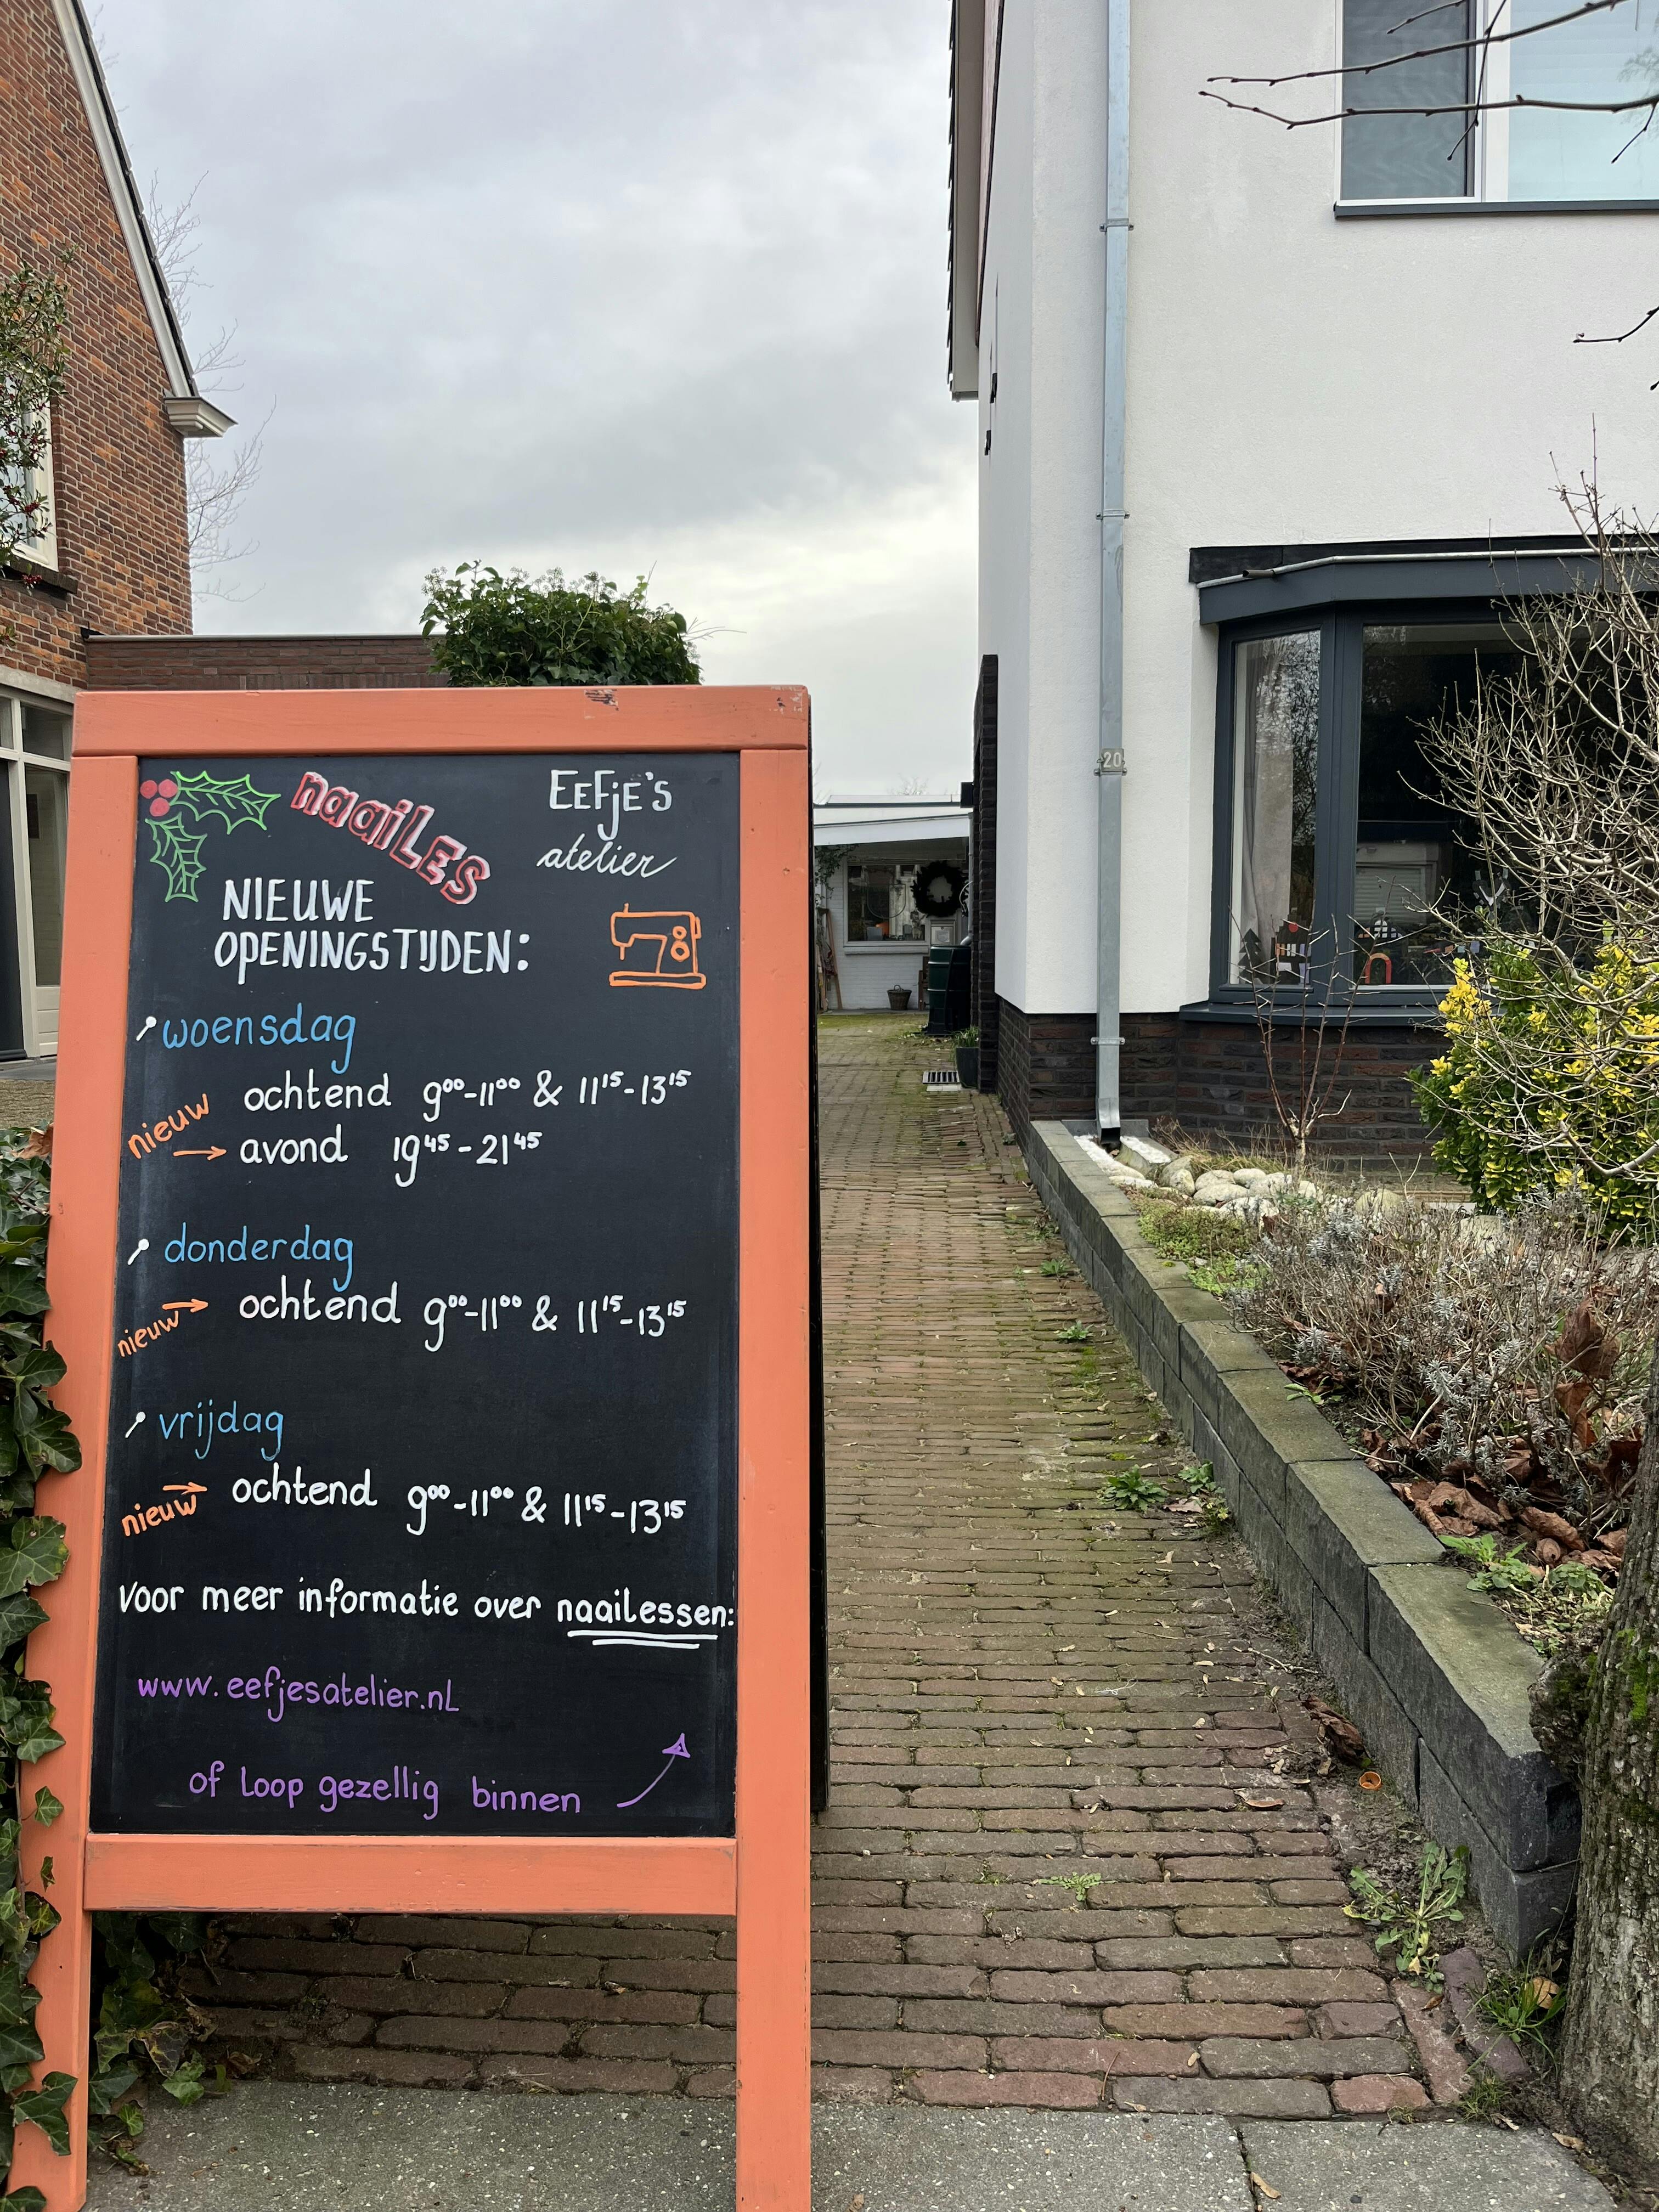 naaiLES
EEFjE'S
atelier
NIEUWE
OPENINGSTIJDEN:
woensdag
ochtend 9⁰⁰-11⁰⁰ & 11¹⁵-13¹⁵
nieuw → avond 19⁴⁵-21⁴⁵
donderdag
nieuw → ochtend 9⁰⁰-11⁰⁰ & 11¹⁵-13¹⁵
vrijdag
nieuw → ochtend 9⁰⁰-11⁰⁰ & 11¹⁵-13¹⁵
Voor meer informatie over naailessen:
www.eefjesatelier.nl
of loop gezellig binnen
20